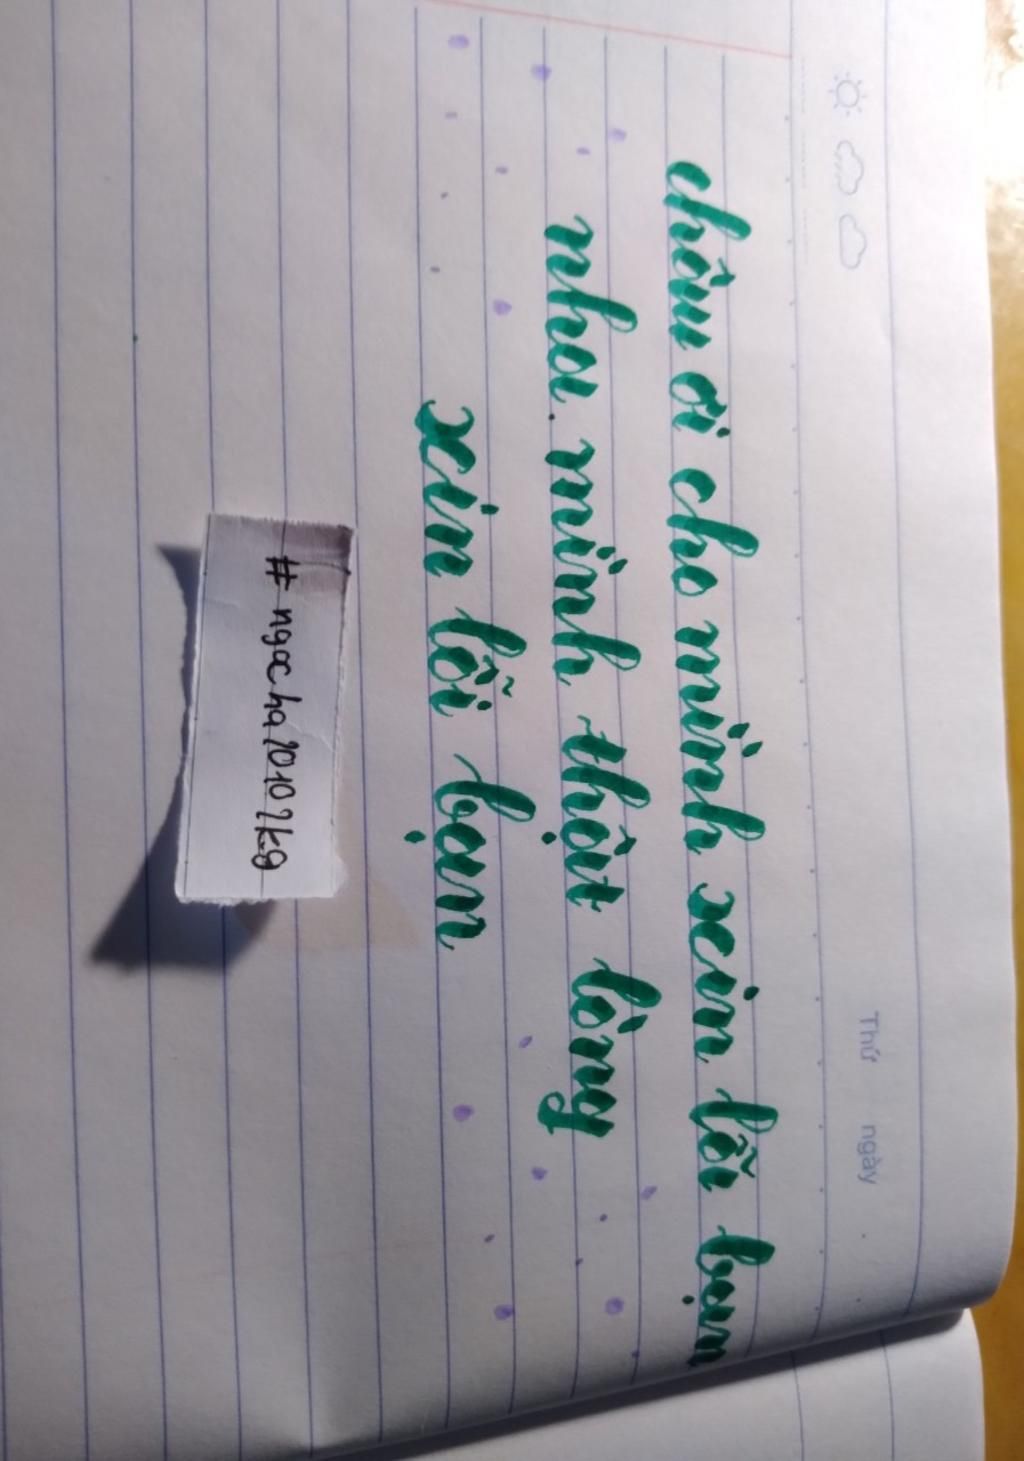 Thứ ngày
châu ơi cho mình xin lỗi bạn
nha. mình thật lòng
xin lỗi bạn
#ngocha2010?kg